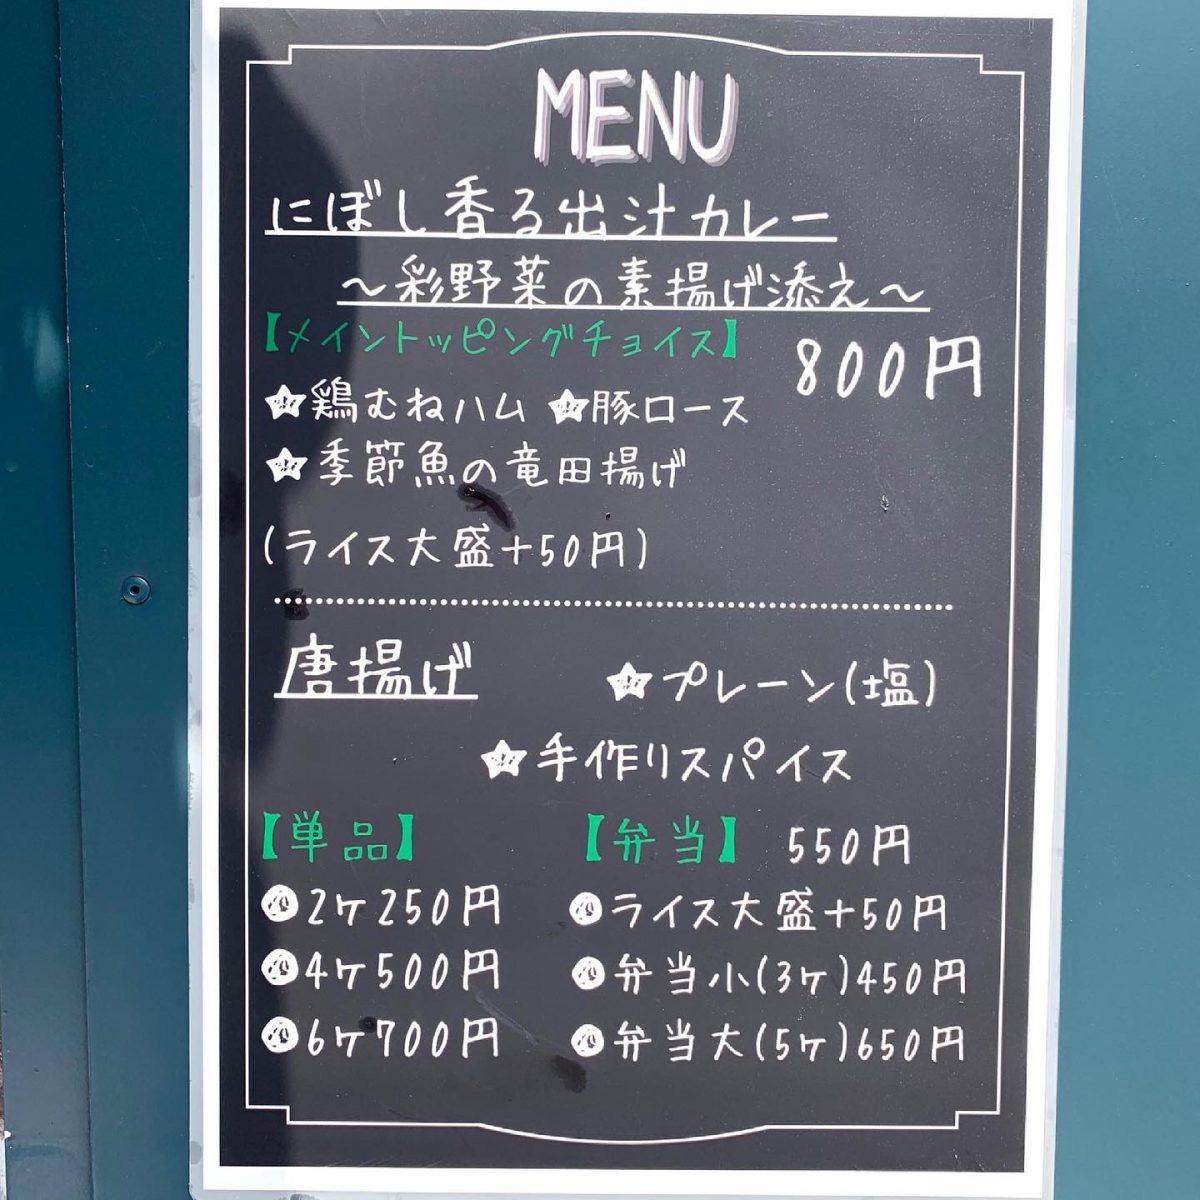 MENU
にぼし香る出汁カレー
～彩野菜の素揚げ添え～
【メイントッピングチョイス】
800円
★鶏むねハム ★豚ロース
★季節魚の竜田揚げ
(ライス大盛+50円)
唐揚げ ★プレーン(塩)
★手作りスパイス
【単品】 【弁当】 550円
2ケ250円 ライス大盛+50円
4ケ500円 弁当小(3ケ)450円
6ケ700円 弁当大(5ケ)650円